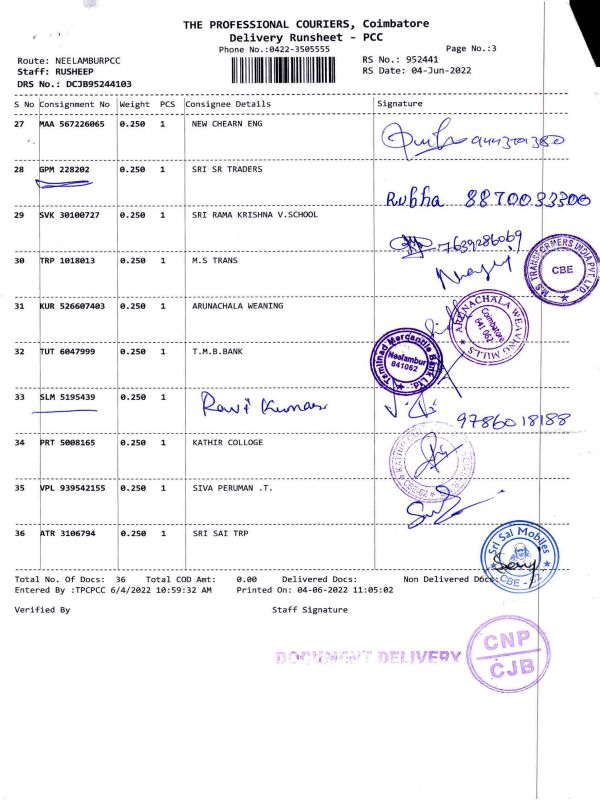 THE PROFESSIONAL COURIERS, Coimbatore
Delivery Runsheet - PCC
Phone No.:0422-3505555
Page No.:3
Route: NEELAMBURPCC
RS No.: 952441
Staff: RUSHEEP
RS Date: 04-Jun-2022
DRS No.: DCJB95244103
S No Consignment No Weight PCS Consignee Details Signature
27 MAA 567226065 0.250 1 NEW CHEARN ENG
28 GPM 228202 0.250 1 SRI SR TRADERS
Rubha 8870033300
29 SVK 30100727 0.250 1 SRI RAMA KRISHNA V.SCHOOL
7639286069
30 TRP 1018013 0.250 1 M.S TRANS
M.S TRANSFORMERS INDIA PVT. LTD.
CBE
31 KUR 526607403 0.250 1 ARUNACHALA WEANING
ARUNACHALA WEAVING MILLS
Coimbatore
641 062
32 TUT 6047999 0.250 1 T.M.B.BANK
Tamilnad Mercantile Bank Ltd.
Neelambur
641062
33 SLM 5195439 0.250 1 Ravi Kumar
9786018188
34 PRT 5008165 0.250 1 KATHIR COLLOGE
35 VPL 939542155 0.250 1 SIVA PERUMAN .T.
36 ATR 3106794 0.250 1 SRI SAI TRP
Sri Sai Mobiles
CBE - 62
Total No. Of Docs: 36 Total COD Amt: 0.00 Delivered Docs: Non Delivered Docs:
Entered By :TPCPCC 6/4/2022 10:59:32 AM Printed On: 04-06-2022 11:05:02
Verified By Staff Signature
DOCUMENT DELIVERY
CNP
CJB